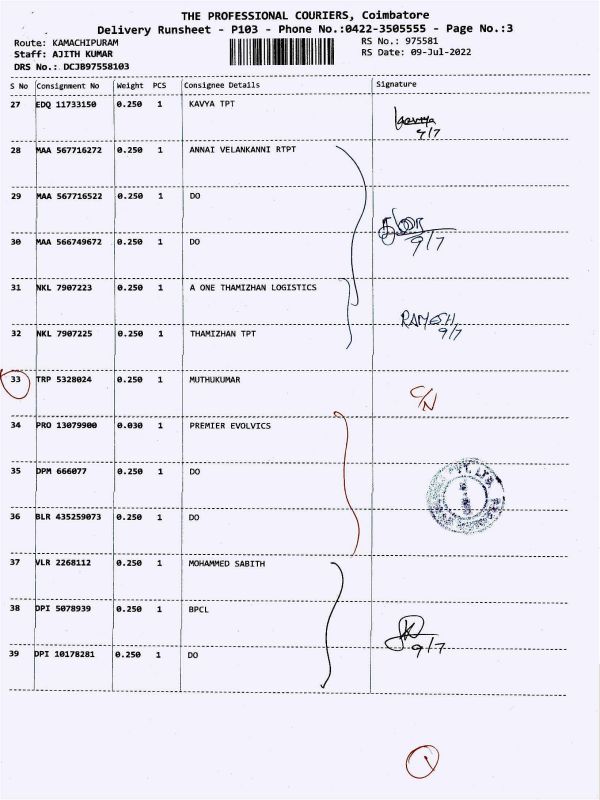 THE PROFESSIONAL COURIERS, Coimbatore
Delivery Runsheet - P103 - Phone No.:0422-3505555 - Page No.:3
Route: KAMACHIPURAM RS No.: 975581
Staff: AJITH KUMAR RS Date: 09-Jul-2022
DRS No.: DCJB97558103
S No Consignment No Weight PCS Consignee Details Signature
27 EDQ 11733150 0.250 1 KAVYA TPT
9/7
28 MAA 567716272 0.250 1 ANNAI VELANKANNI RTPT
29 MAA 567716522 0.250 1 DO
30 MAA 566749672 0.250 1 DO
9/7
31 NKL 7907223 0.250 1 A ONE THAMIZHAN LOGISTICS
RAMESH
32 NKL 7907225 0.250 1 THAMIZHAN TPT 9/7
33 TRP 5328024 0.250 1 MUTHUKUMAR
C/N
34 PRO 13079900 0.030 1 PREMIER EVOLVICS
35 DPM 666077 0.250 1 DO
36 BLR 435259073 0.250 1 DO
37 VLR 2268112 0.250 1 MOHAMMED SABITH
38 DPI 5078939 0.250 1 BPCL
9/7
39 DPI 10178281 0.250 1 DO
1